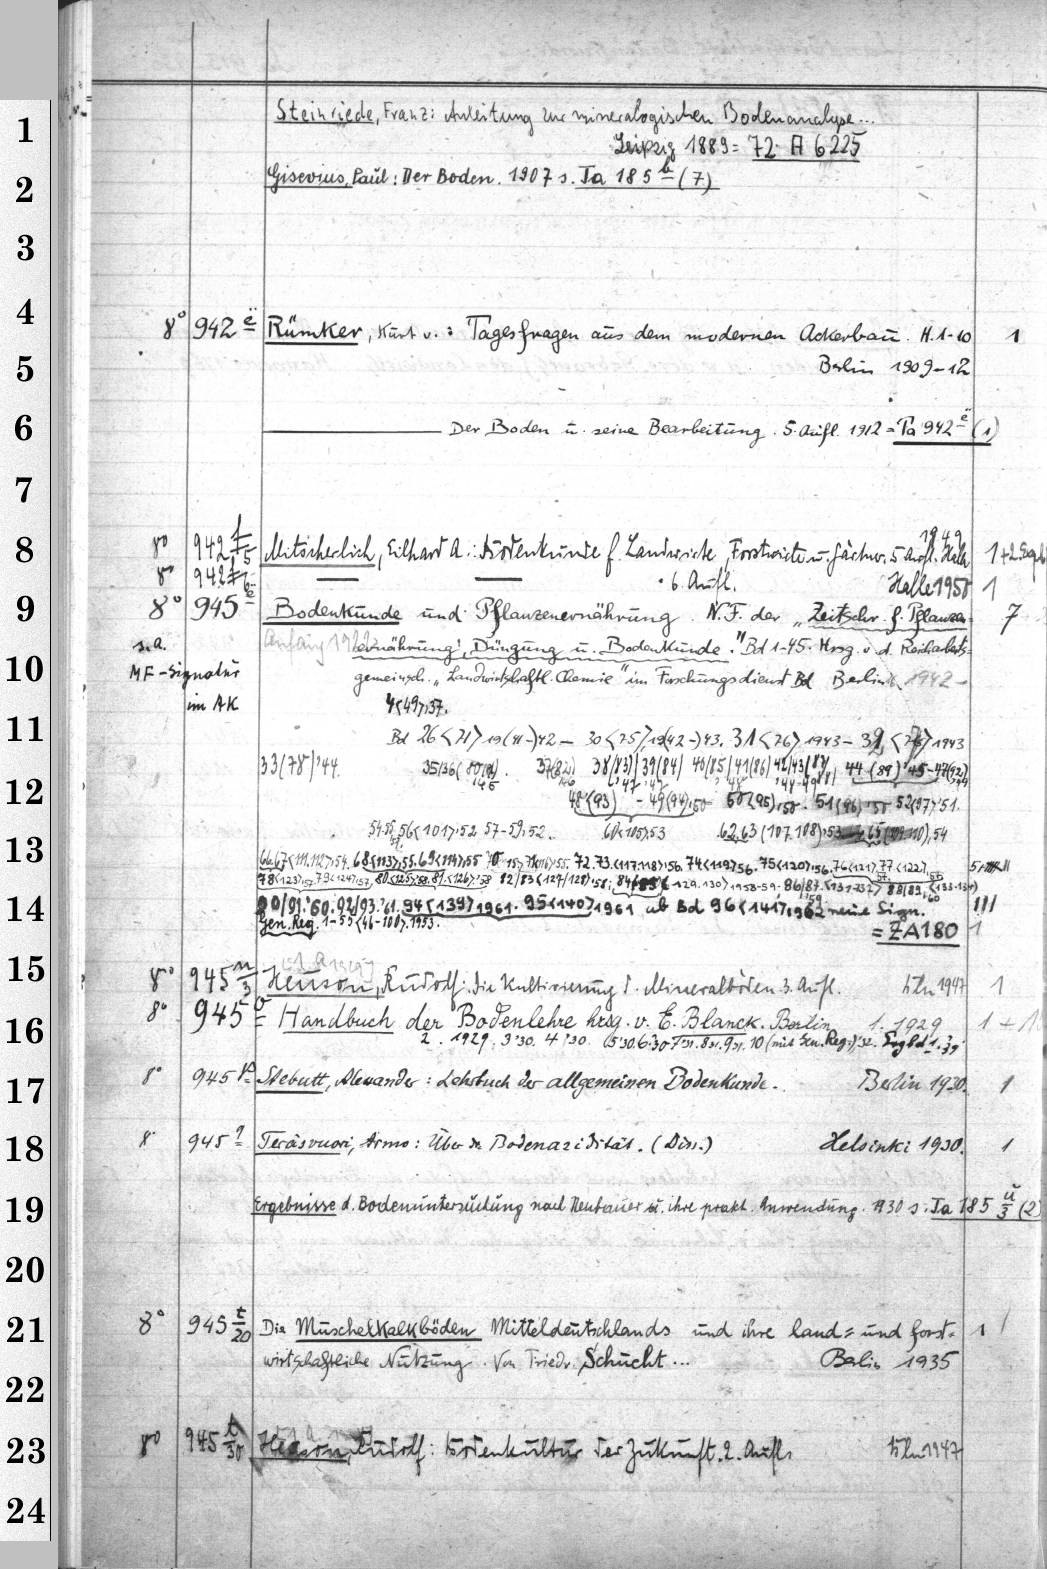 1 Steinriede, Franz: Anleitung zur mineralogischen Bodenanalyse...
Leipzig 1889 = 72 A 6225
2 Gisevius, Paul: Der Boden. 1907 s. Ta 185 b (7)
3
4 8° 942 ë Rümker, Kurt v.: Tagesfragen aus dem modernen Ackerbau. H.1-10 1
5 Berlin 1909-12
6 Der Boden u. seine Bearbeitung. 5. Aufl. 1912 = Ta 942 ë (1)
7
8 8° 942 f/5 Mitscherlich, Eilhard A.: Bodenkunde f. Landwirte, Forstwirte u. Gärtner. 5. Aufl. Halle 1949 1+2
8° 942 f/6 6. Aufl. Halle 1950 1
9 8° 945 e Bodenkunde und Pflanzenernährung. N.F. der "Zeitschr. f. Pflanzen- 7
s.a. Anfang ernährung, Düngung u. Bodenkunde". Bd 1-45. Hrsg. v. d. Reichsarbeits-
10 MF-Signatur gemeinsch. "Landwirtschaftl. Chemie" im Forschungsdienst Bd Berlin 1942-
im AK
11 Bd 26<71>19(41-)42 - 30<75>19(42-)43. 31<76>1943 - 1943
33(78)'44. 35/36( 37(82) 38(83) 39(84) 40(85) 41(86) 42/43(87 44(89)'45-47(92)
12 48(93) - 49(94),50 50(95),50. 51(96)'50 52(97)'51.
56<101>'52 57-59,52. 60<105>,53 62,63(107.108),53 54
13 66.67<111.112>,54. 68<113>,55. 69<114>,55 72.73.<117.118>,56. 74<119>56. 75<120>,56. 76<121> 77<122>
78<123>,57. 79<124>,57. 80<125>,58. 81<126>,58 82/83<127/128>,58; 129.130>1958-59. 86/87.<131-132> 88/89.<133-134>
14 90/91.'60. 92/93.'61. 94<139>1961. 95<140>1961 ab Bd 96<141>1962 neue Sign. III
Gen. Reg. 1-55<46-100>.1953. = ZA180 1
15 8° 945 n/3 Heuson, Rudolf: Die Kultivierung d. Mineralböden. 3. Aufl. Bln 1947 1
8° 945 o Handbuch der Bodenlehre hrsg. v. E. Blanck. Berlin 1. 1929 1+10
16 2. 1929. 3'30. 4'30. (5'30. 6'30 7'31. 8'31. 9'31. 10 (mit Gen. Reg.)'32. Ergbd 1.'39
17 8° 945 p Stebutt, Alexander: Lehrbuch der allgemeinen Bodenkunde. Berlin 1930. 1
18 8° 945 q Teräsvuori, Armo: Über die Bodenazidität. (Diss.) Helsinki 1930. 1
19 Ergebnisse d. Bodenuntersuchung nach Neubauer u. ihre prakt. Anwendung. 1930 s. Ta 185 ü/3 (2)
20
21 8° 945 t/20 Die Muschelkalkböden Mitteldeutschlands und ihre land= und forst- 1
wirtschaftliche Nutzung. Von Friedr. Schucht... Berlin 1935
22
23 8° 945 t/30 Heuson, Rudolf: Bodenkultur der Zukunft. 2. Aufl. Bln 1947
24